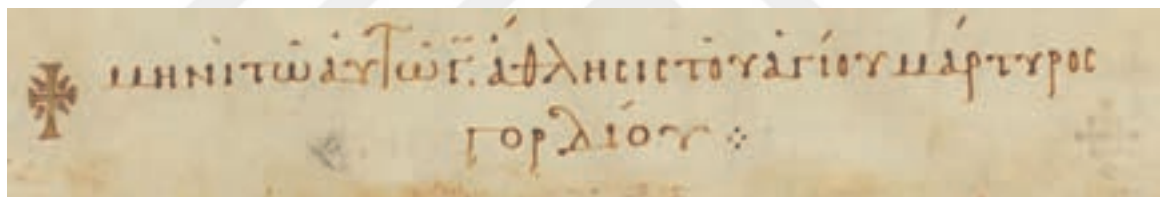 μηνὶ τῶ ἀυτῶ γ̅. ἄθλησις τοῦ ἁγίου μάρτυρος
γορδίου ⁘